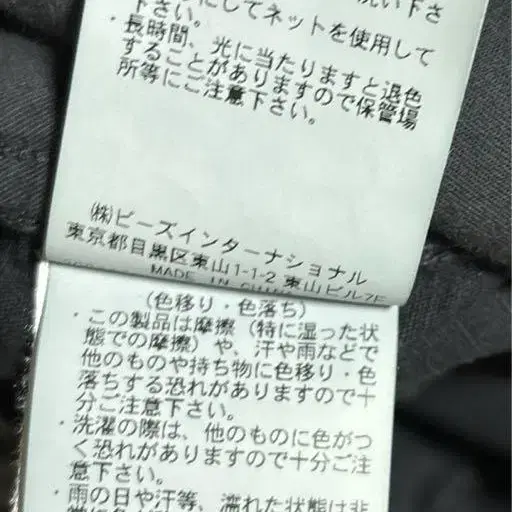 にしてネットを使用して
下さい。
・長時間、光に当たりますと退色
することがありますので保管場
所等にご注意下さい。
㈱ビーズインターナショナル
東京都目黒区東山1-1-2 東山ビル7F
MADE IN CHINA
(色移り・色落ち)
・この製品は摩擦(特に湿った状
態での摩擦)や、汗や雨などで
他のものや持ち物に色移り・色
落ちする恐れがありますので十
分ご注意下さい。
・洗濯の際は、他のものに色がつ
く恐れがありますので十分ご注
意下さい。
・雨の日や汗等、濡れた状態は非